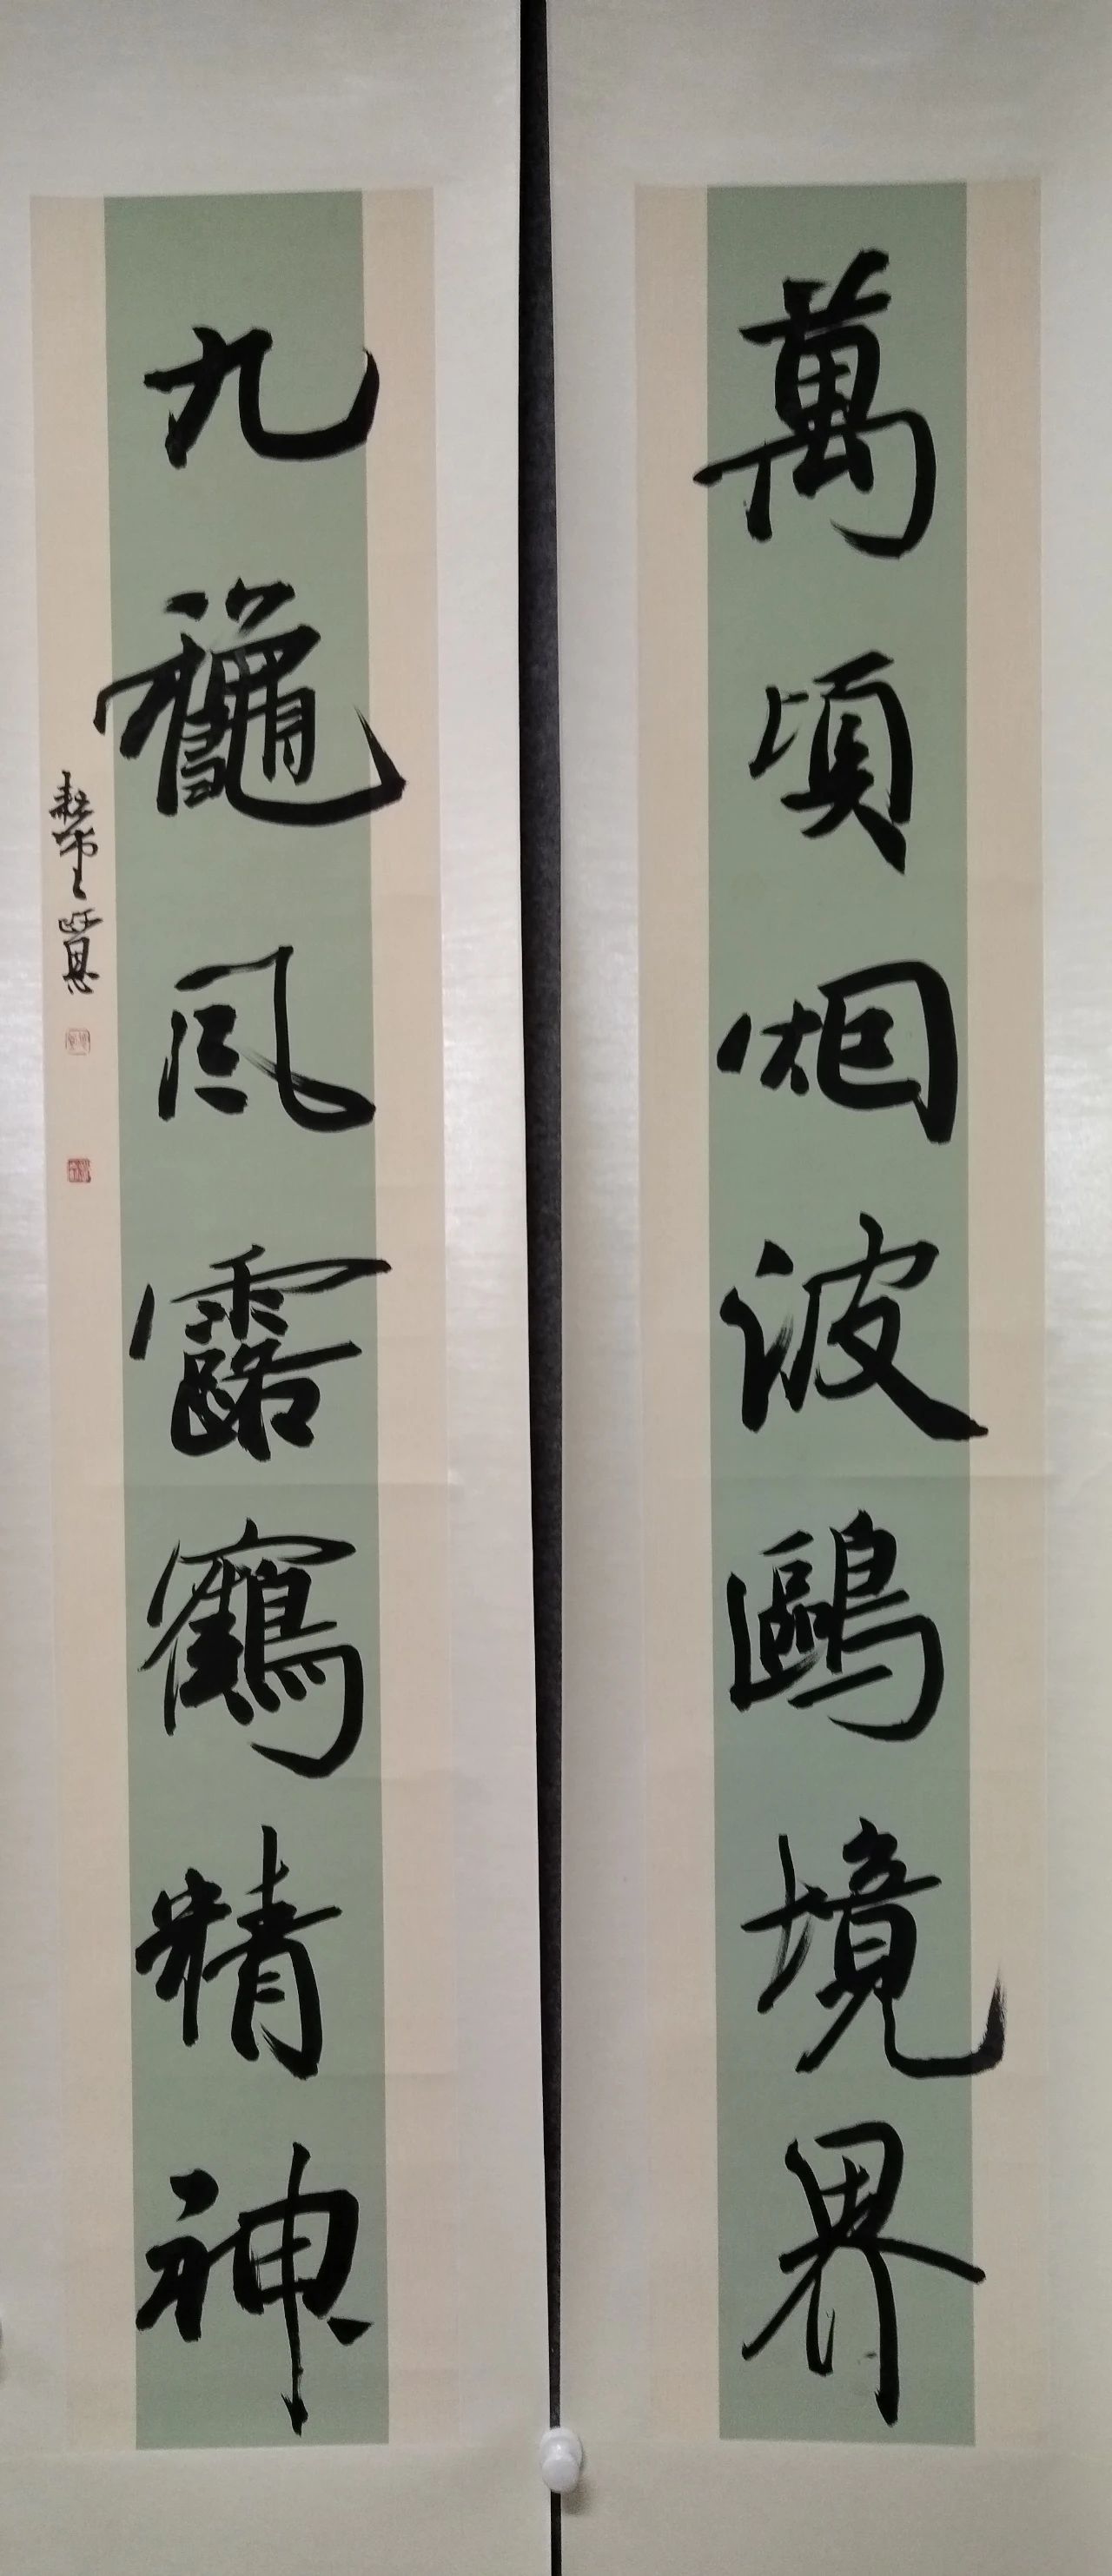 萬頃烟波鷗境界
九穐風露鶴精神